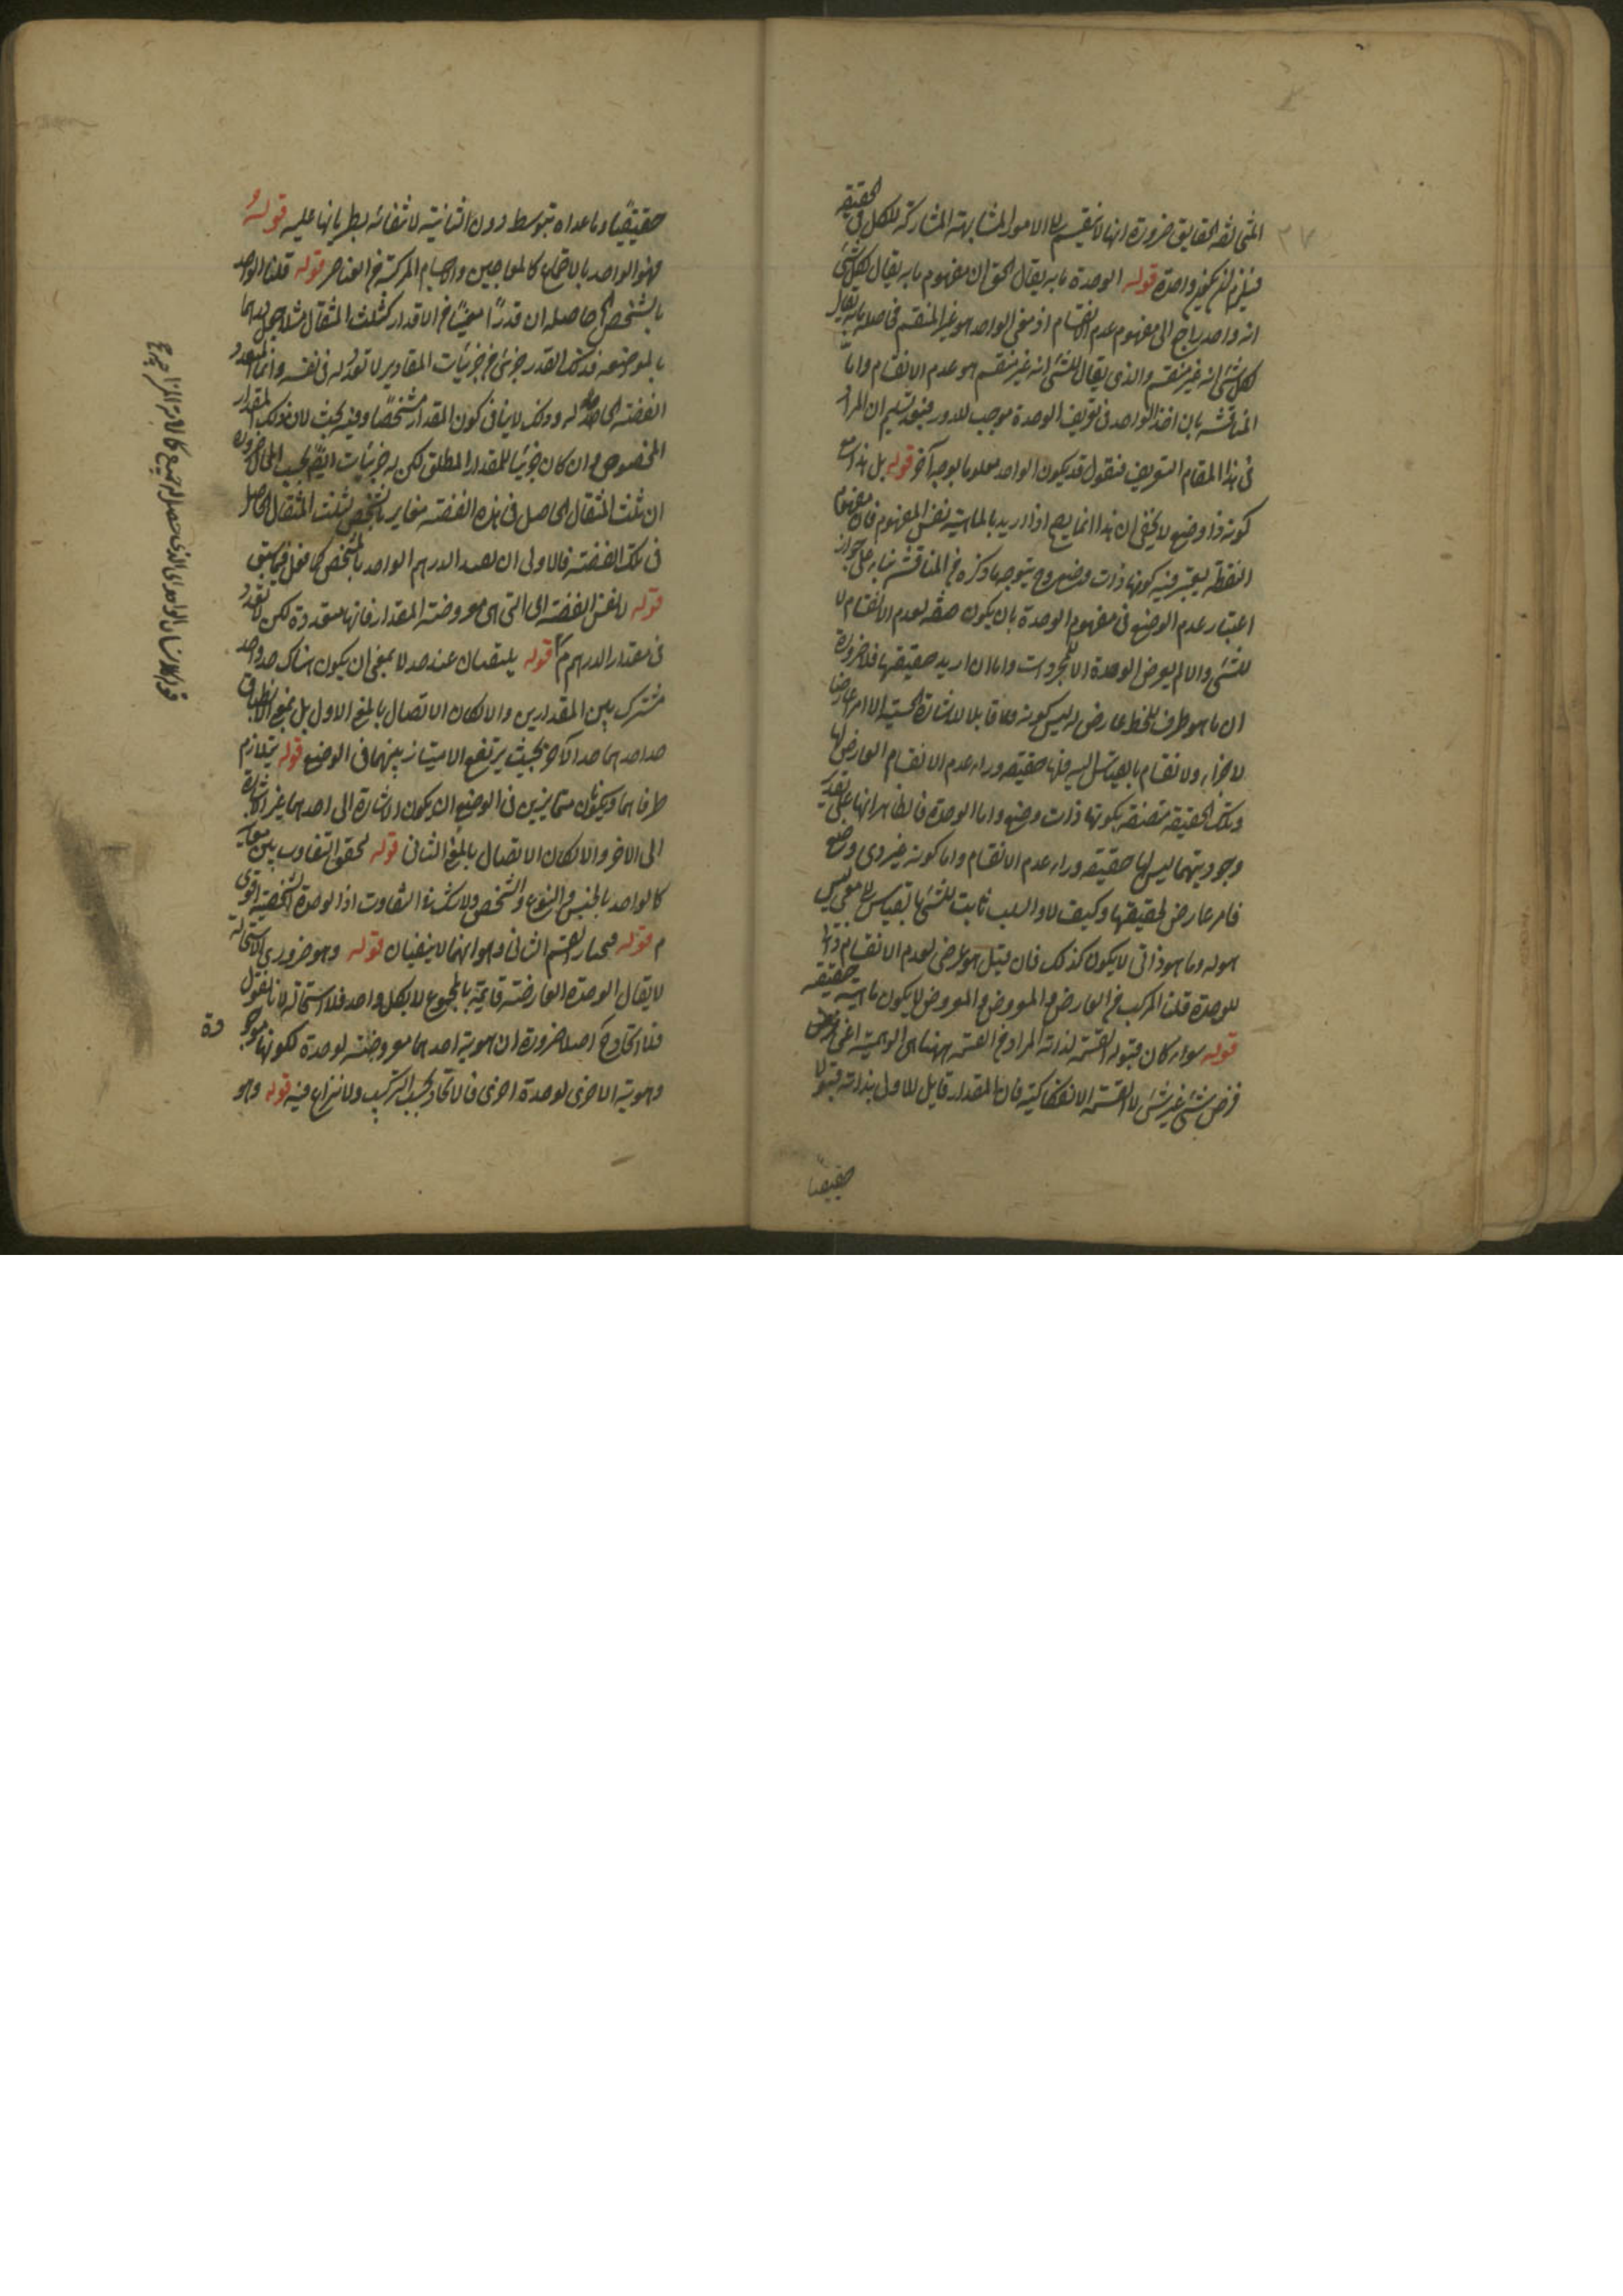 المتخالفة الحقايق ضرورة انها لا تنقسم الا الامور المتشابهة المشاركة للكل فى الحقيقة
فيلزم ان يكون واحدة قوله الوحدة ما به يقال الحق ان مفهوم ما به يقال لكل شئ
انه واحد راجع الى مفهوم عدم الانقسام اذ معنى الواحد هو غير المنقسم فحاصله ما به يقال
لكل شئ انه غير منقسم والذى يقال للشئ انه غير منقسم هو عدم الانقسام واما
المناقشة بان اخذ الواحد فى تعريف الوحدة موجب للدور فبعد تسليم ان المراد
فى هذا المقام التعريف فنقول قد يكون الواحد معلوما بوجه آخر قوله بل هذا مع
كونه ذا وضع لا يخفى ان هذا انما يصح اذا اريد بالماهية نفس المفهوم فان مفهوم
النقطة يعتبر فيه كونها ذات وضع وح يتوجه ما ذكره من المناقشة بناء على جواز
اعتبار عدم الوضع فى مفهوم الوحدة بان يكون صفة لعدم الانقسام لا
للشئ والا لم يعرض الوحدة الا للمجردات واما ان اريد حقيقتها فلا ضرورة
ان ما هو طرف للخط عارض له ليس كونه قابلا للاشارة الحسية الا امرا عارضا
لا جزاء ولا انقسام بالقياس اليه فلها حقيقة وراء عدم الانقسام العارض لها
وتلك الحقيقة متصفة بكونها ذات وضع واما الوحدة فالظاهر انها على تقدير
وجوديتهما ليس لها حقيقة وراء عدم الانقسام واما كونه غير ذى وضع
فامر عارض لحقيقتها وكيف لا والسلب ثابت للشئ بالقياس الى معنى ليس
هو له وما هو ذاتى لا يكون كذلك فان قيل هو عرضى لعدم الانقسام وذاتى
للوحدة قلنا المركب من العارض والمعروض لا يكون ماهية حقيقة
قوله سواء كان قبوله القسمة لذاته المراد من القسمة ههنا هى الوهمية اعنى فرض
فرض شئ غير شئ لا القسمة الانفكاكية فان المقدار قابل للاول بذاته قبولا
حقيقيا
حقيقيا وما عداه بتوسط دون الثانية لانتفائه بطريانها عليه قوله
فهو الواحد بالاجتماع كالمعاجين والاجسام المركبة من العناصر قوله قلنا الواحد
بالشخص الخ حاصله ان قدرا معينا من الاقدار كثلث المثقال مثلا
بالموضوعه فذلك القدر جزئى من جزئيات المقادير لا تعدد له فى نفسه وانما التعدد
الفضة الحاصلة له وذلك لا ينافى كون المقدار مشخصا وفيه بحث لان ذلك المقدار
المخصوص وان كان جزئيا للمقدار المطلق لكن له جزئيات ايضا بحسب المحال ضرورة
ان ثلث المثقال الحاصل فى هذه الفضة مغاير بالشخص لثلث المثقال الحاصل
فى تلك الفضة فالاولى ان لا يعد الدرهم الواحد بالشخص كما فعل فيما سبق
قوله لا نفس الفضة اى التى هى معروضة المقدار فانها متعددة لكن لا تعدد
فى مقدار الدرهم قوله يلتقيان عند حد لا بمعنى ان يكون هناك حد واحد
مشترك بين المقدارين والا لكان الاتصال بالمعنى الاول بل بمعنى الانطباق
حد احدهما حد الآخر بحيث يرتفع الامتياز بينهما فى الوضع قوله يتلازم
طرفاهما ويكونان متمايزين فى الوضع اى يكون الاشارة الى احدهما غير الاشارة
الى الآخر والا لكان الاتصال بالمعنى الثانى قوله لتحقق التفاوت بين معانيه
كالواحد بالجنس والنوع والشخص ولا شك فى التفاوت اذ الوحدة الشخصية اقوى
قوله فيختار القسم الثانى وهو انهما لا ينفيان قوله وهو ضرورى الاستحالة
لا يقال الوحدة العارضة قايمة بالمجموع لا بكل واحد فلا استحالة لانا نقول
فلا اتحاد ح اصلا ضرورة ان هوية احدهما معروضة لوحدة لكونها موجودة
وهوية الاخرى لوحدة اخرى فالاتحاد بحسب التركيب ولا نزاع فيه قوله وهو